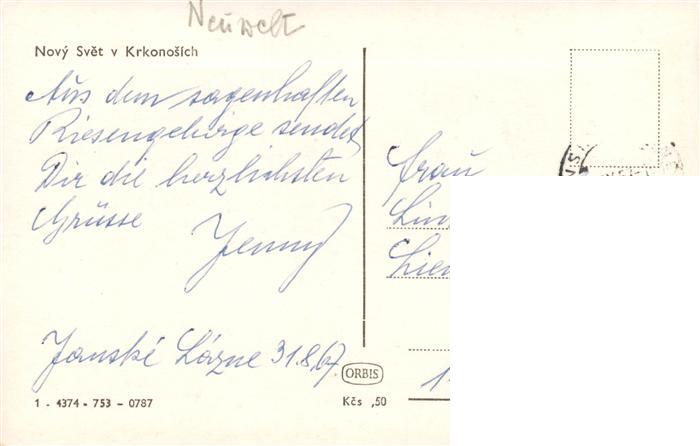 Neuwelt
Nový Svět v Krkonoších
Aus dem sagenhaften
Riesengebirge sendet
Dir die herzlichsten
Grüsse
Jenny
Janské Lázne 31.8.67
Frau
ORBIS
1 - 4374 - 753 - 0787
Kčs ,50